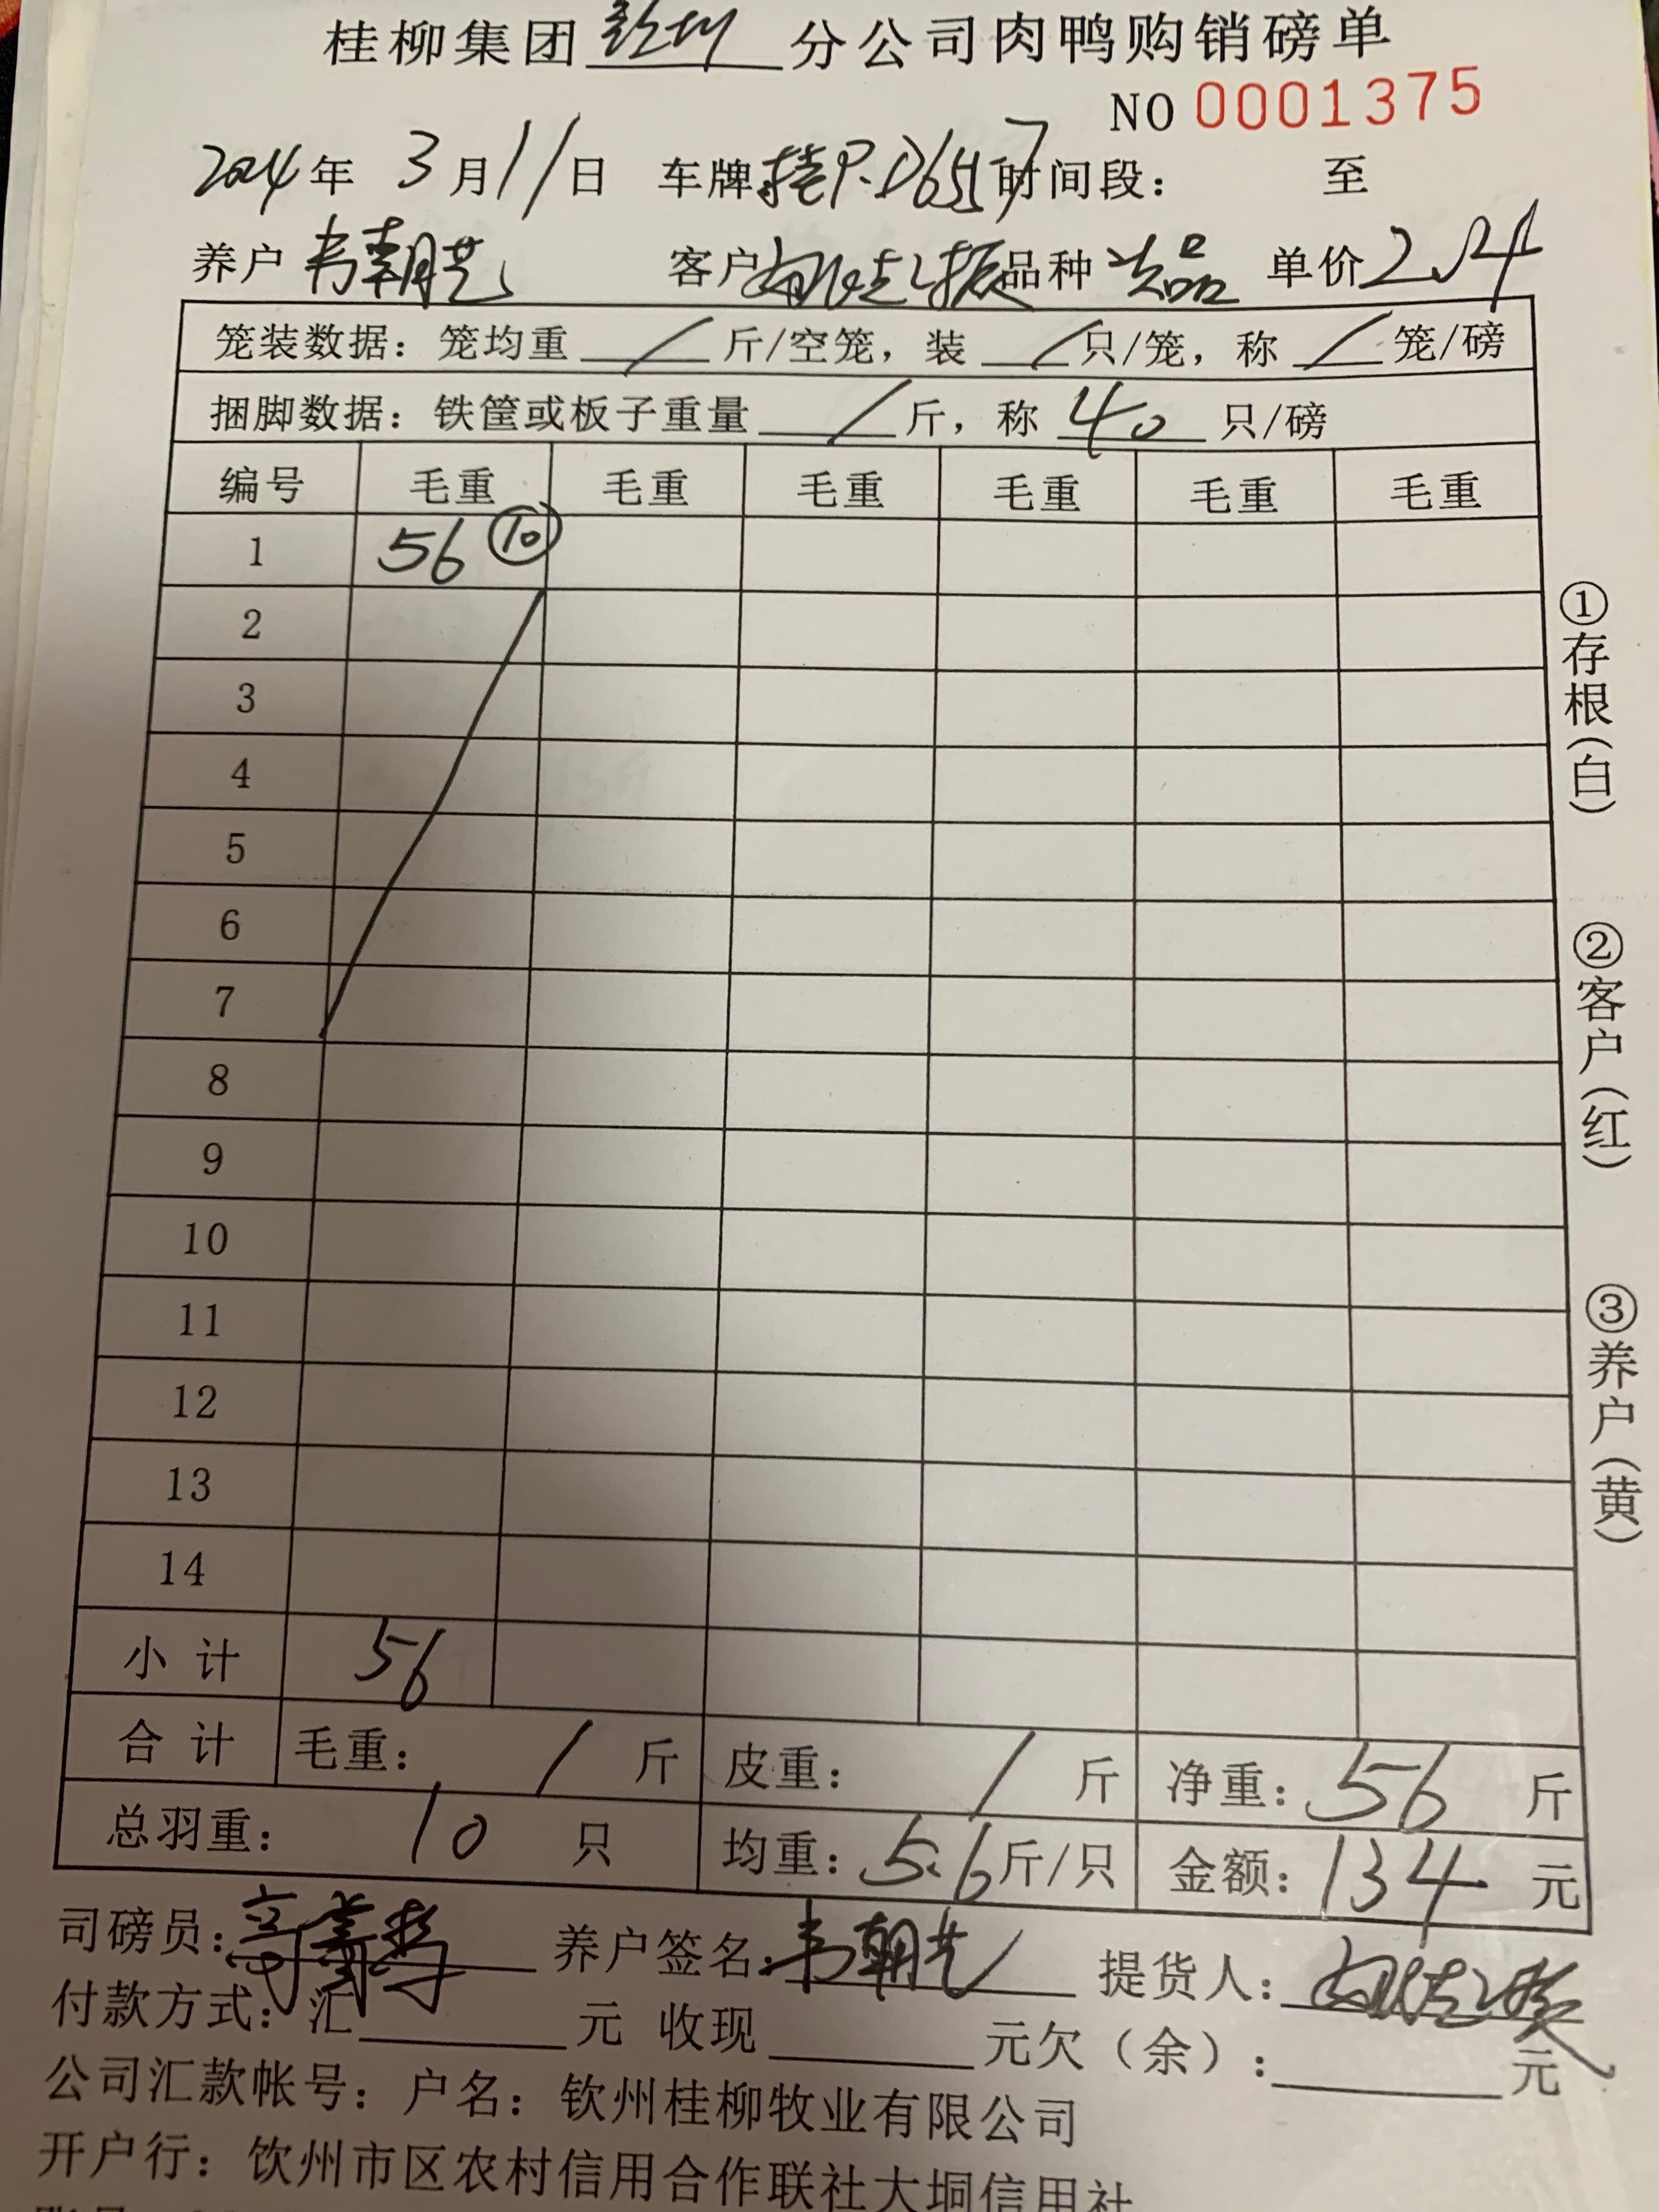 桂柳集团 钦州 分公司肉鸭购销磅单
NO 0001375
2024年 3月11日 车牌 桂P·D6517 时间段： 至
养户 韦朝艺 客户 品种 次品 单价 2.4
笼装数据：笼均重 / 斤/空笼，装 / 只/笼，称 / 笼/磅
捆脚数据：铁筐或板子重量 / 斤，称 40 只/磅
编号 毛重 毛重 毛重 毛重 毛重 毛重
1 56 ⑩
2
3
4
5
6
7
8
9
10
11
12
13
14
小计 56
合计 毛重： / 斤 皮重： / 斤 净重：56 斤
总羽重： 10 只 均重：5.6斤/只 金额：134 元
司磅员： 养户签名：韦朝艺 提货人：
付款方式：汇 元 收现 元欠（余）： 元
公司汇款帐号：户名：钦州桂柳牧业有限公司
开户行：钦州市区农村信用合作联社大垌信用社
①存根（白）
②客户（红）
③养户（黄）